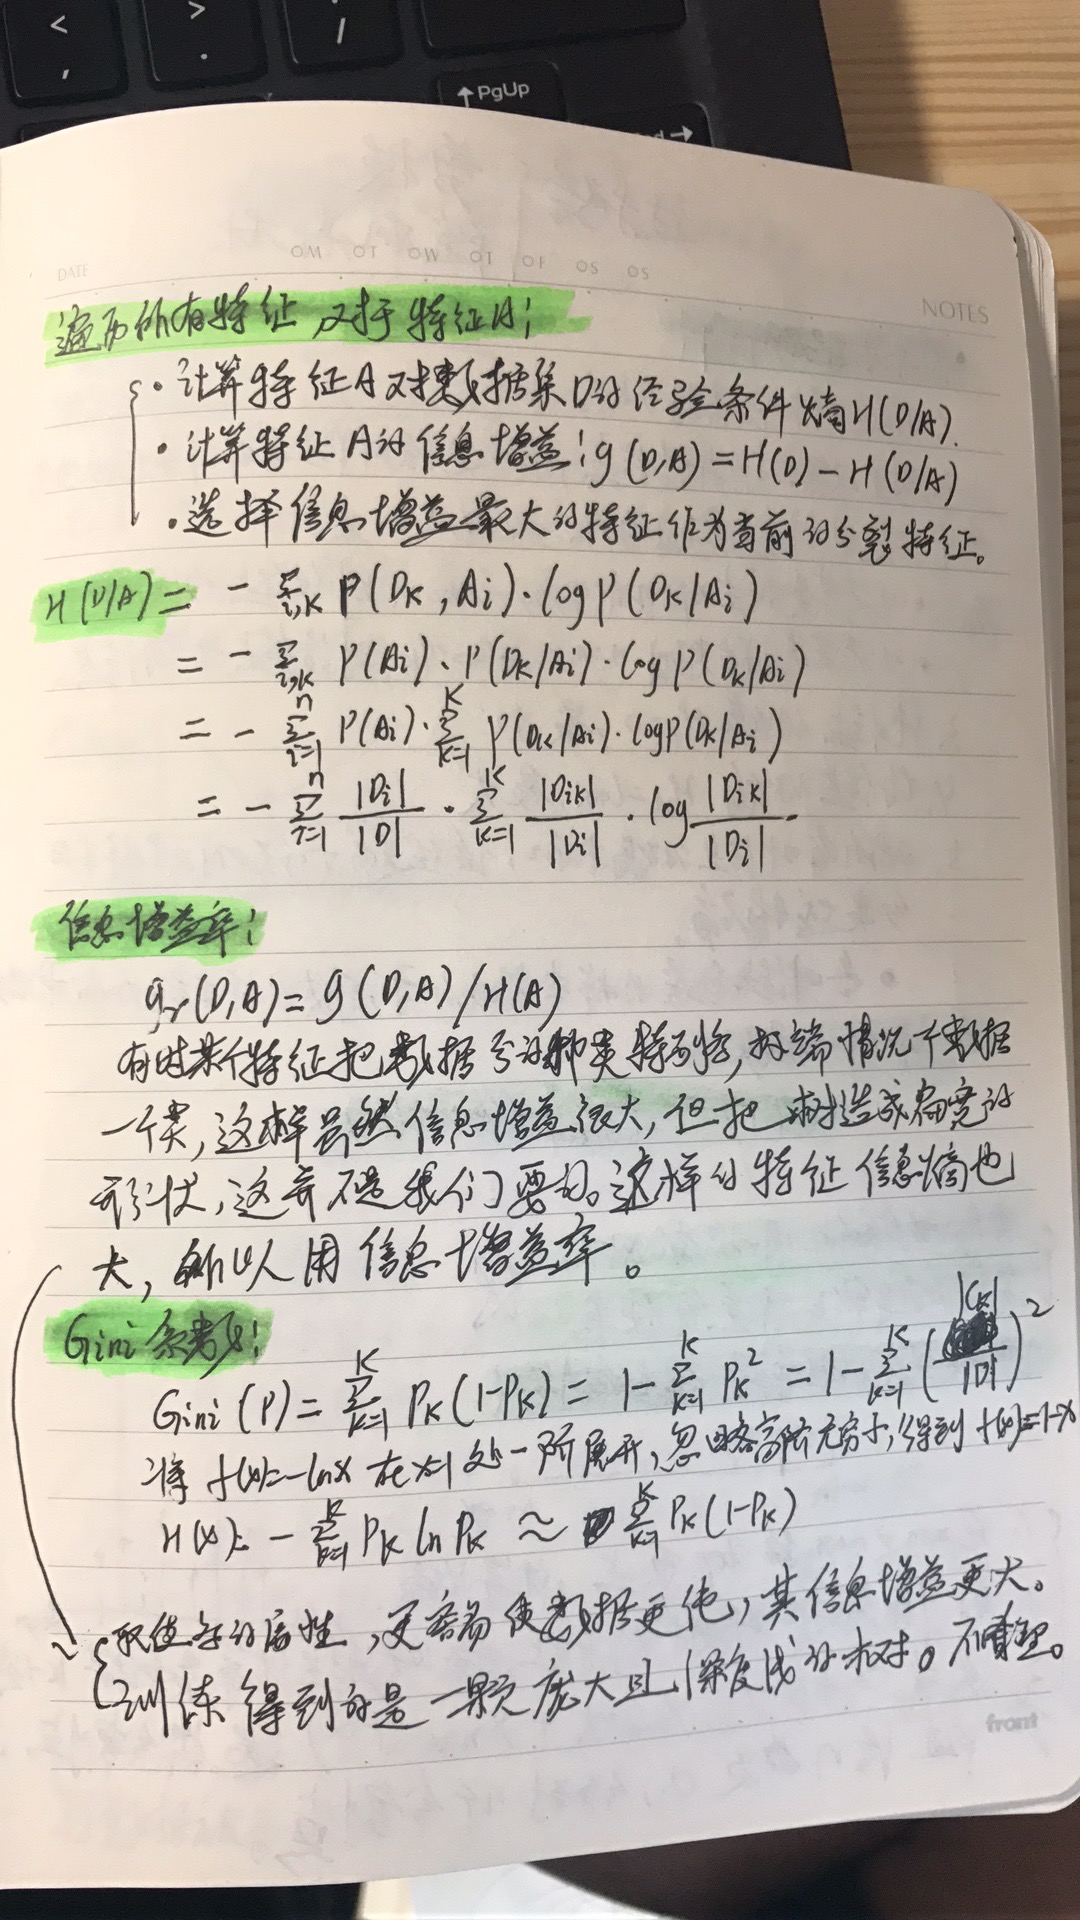 PgUp
DATE
NOTES
遍历所有特征,对于特征A:
· 计算特征A对数据集D的经验条件熵H(D/A).
· 计算特征A的信息增益:g(D,A)=H(D)-H(D/A)
· 选择信息增益最大的特征作为当前的分裂特征。
H(D/A)= - Σ_{i,k} P(D_k,A_i)·log P(D_k/A_i)
= - Σ_{i,k} P(A_i)·P(D_k/A_i)·log P(D_k/A_i)
= - Σ_{i=1}^{n} P(A_i)·Σ_{k=1}^{K} P(D_k/A_i)·log P(D_k/A_i)
= - Σ_{i=1}^{n} |D_i|/|D| · Σ_{k=1}^{K} |D_{ik}|/|D_i| · log |D_{ik}|/|D_i|
信息增益率:
g_r(D,A)=g(D,A)/H(A)
有时某个特征把数据分的种类特别多,极端情况下数据
一个类,这样虽然信息增益很大,但把树造成扁宽的
形状,这并不是我们要的。这样的特征信息熵也
大,所以人用信息增益率。
Gini系数:
Gini(P)=Σ_{k=1}^{K} P_k(1-P_k)=1-Σ_{k=1}^{K} P_k^2=1-Σ_{k=1}^{K}(|C_k|/|D|)^2
将f(x)=-lnx在x=1处一阶展开,忽略高阶无穷小,得到f(x)=1-x
H(x)=-Σ_{k=1}^{K} P_k ln P_k ≈ Σ_{k=1}^{K} P_k(1-P_k)
取值多的属性,更容易使数据更纯,其信息增益更大。
训练得到的是一颗庞大且深度浅的树。不合理。
front